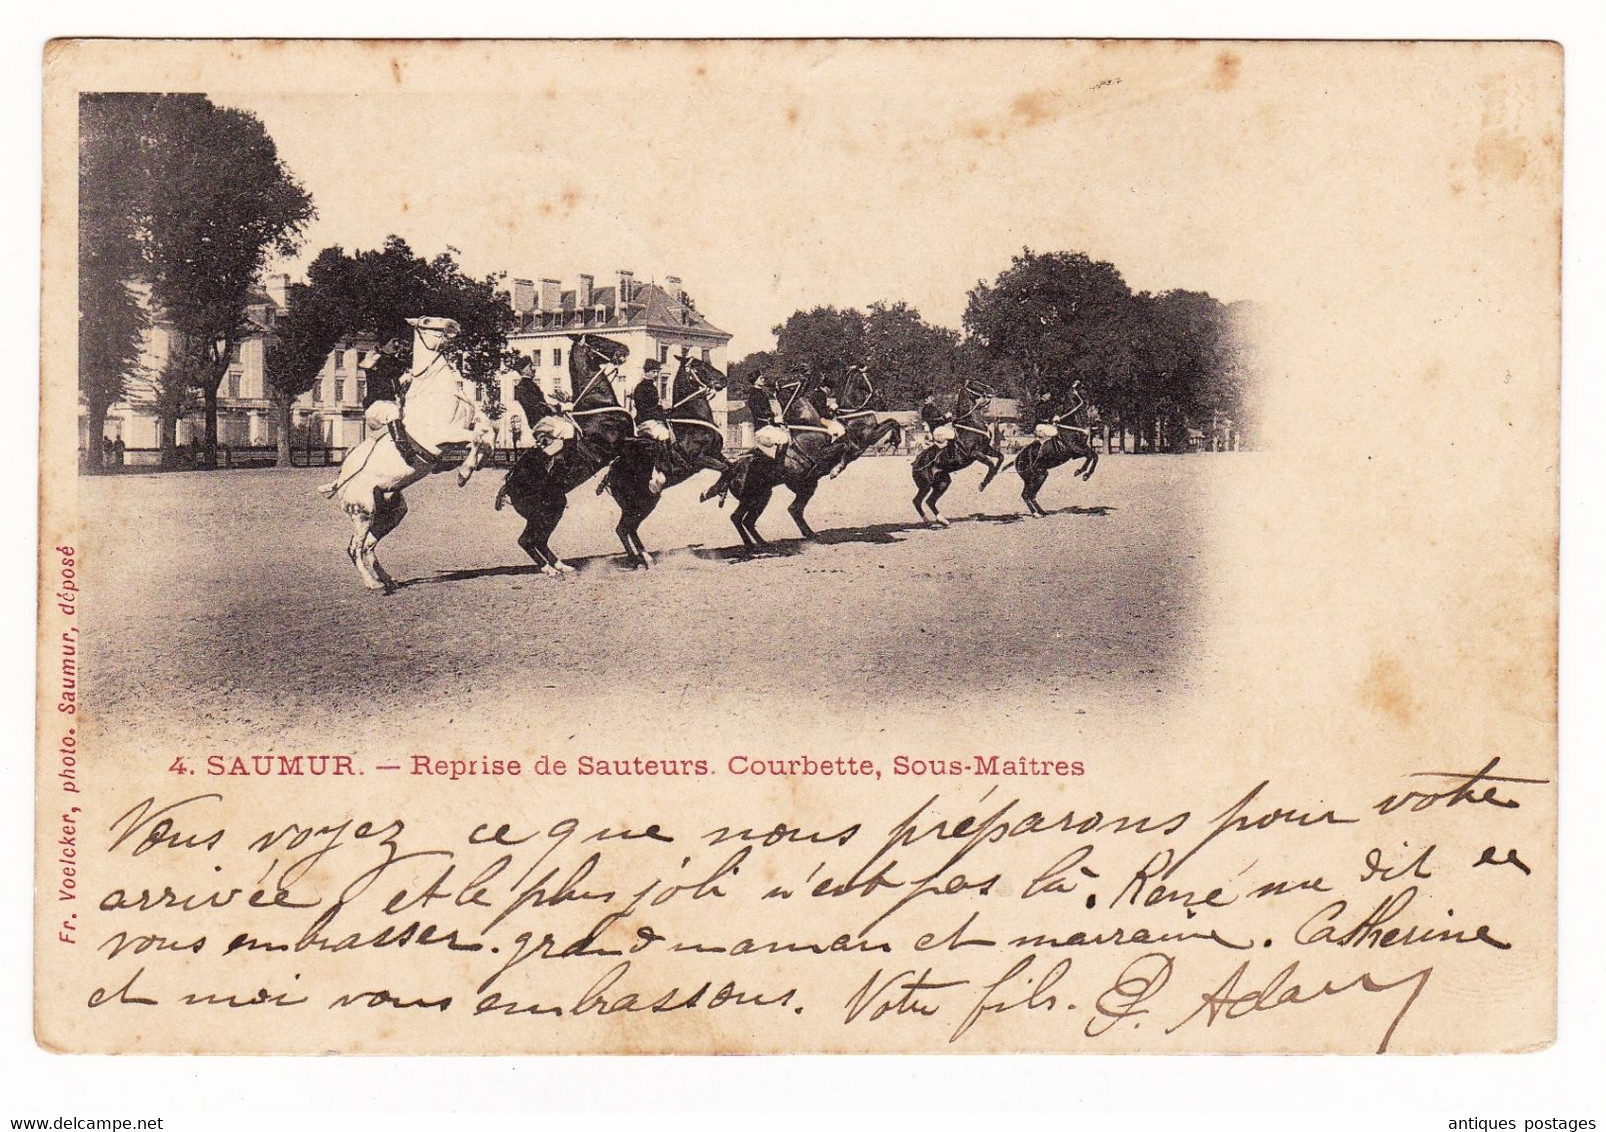 4. SAUMUR. — Reprise de Sauteurs. Courbette, Sous-Maîtres
Fr. Voelcker, photo. Saumur, déposé
Vous voyez ce que nous préparons pour votre
arrivée et le plus joli n'est pas là. René me dit de
vous embrasser. grand maman et marraine. Catherine
et moi vous embrassons. Votre fils. P. Adam
www.delcampe.net
antiques postages